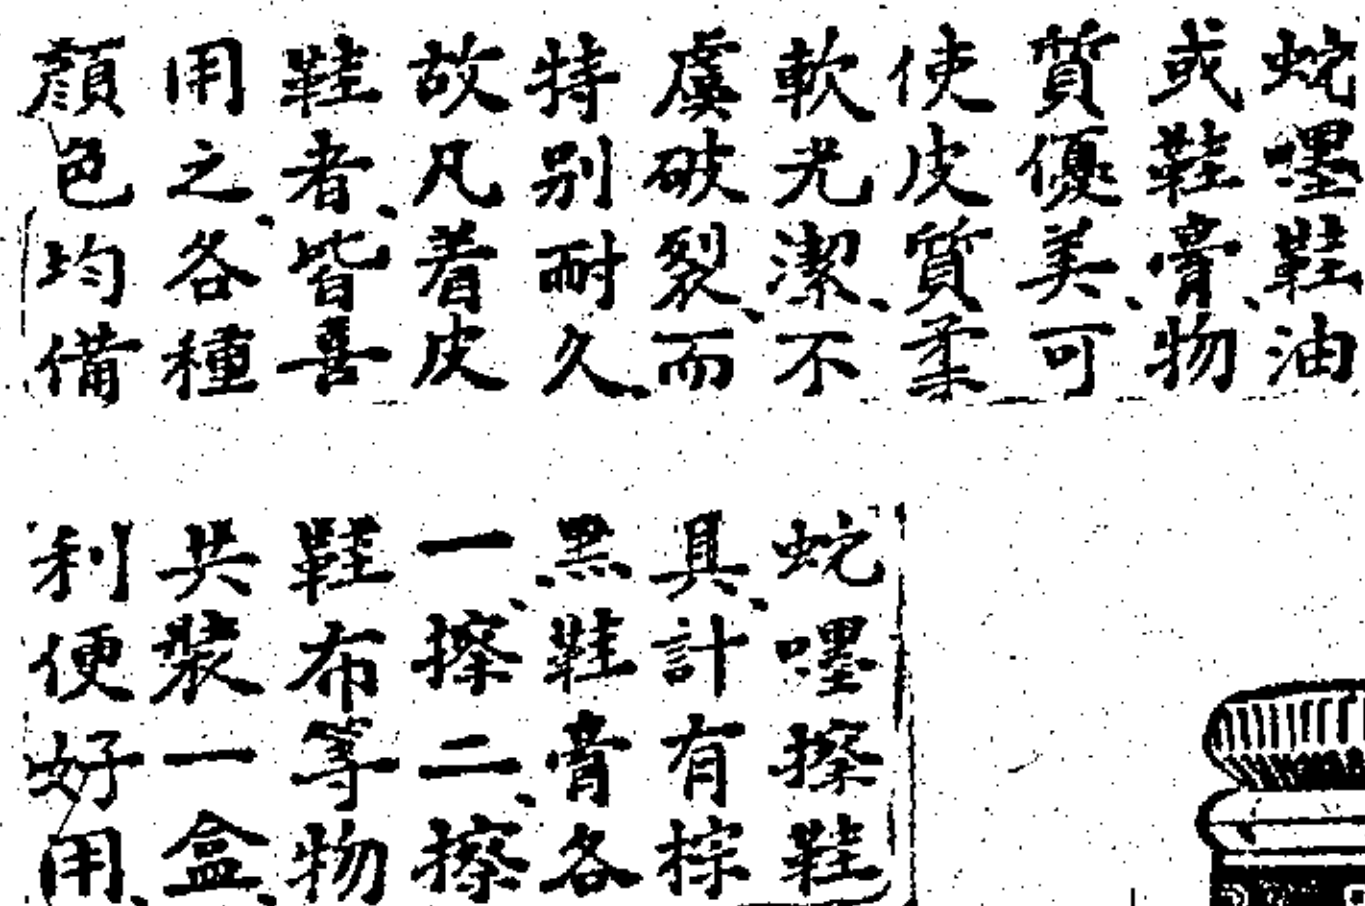 蛇嘿鞋油
或鞋膏、物
質優美、可
使皮質柔
軟光潔、不
虞破裂、而
特別耐久、
故凡着皮
鞋者、皆喜
用之、各種
顏色均備
蛇嘿擦鞋
具、計有棕
黑鞋膏各
一、擦二、擦
鞋布等物
共裝一盒、
利便好用、